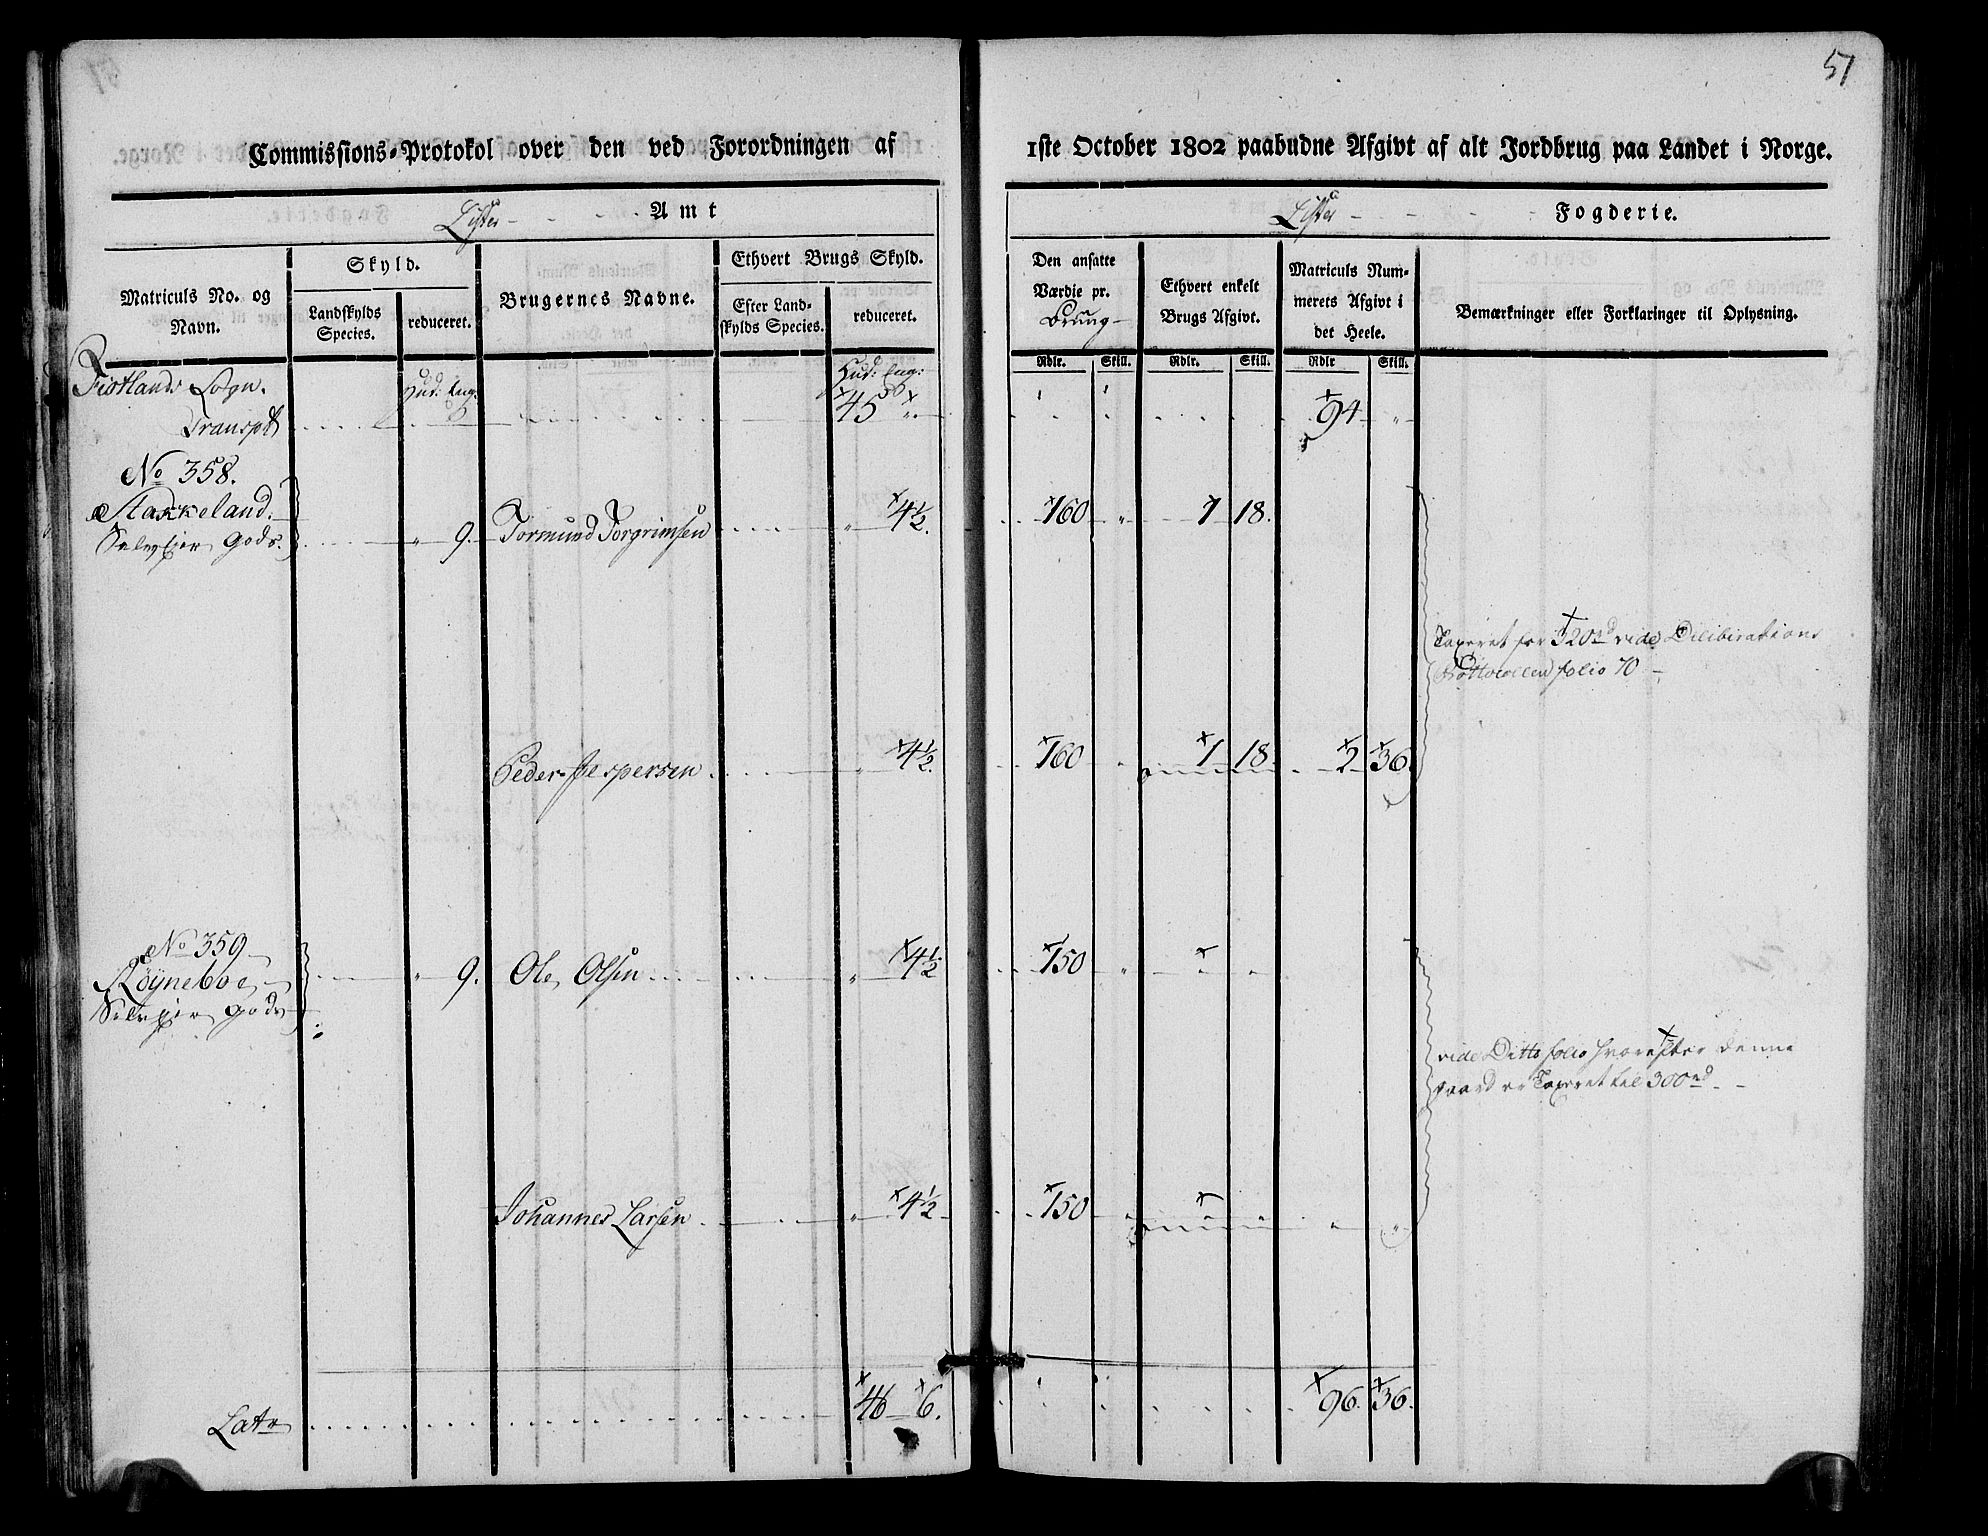 51
Commissions-Protokol over den ved Forordningen af 1ste October 1802 paabudne Afgivt af alt Jordbrug paa Landet i Norge.
Lister Amt
Lister Fogderie.
Matriculs No. og Navn.
Skyld.
Landskylds Species.
reduceret.
Brugernes Navne.
Ethvert Brugs Skyld.
Efter Landskylds Species.
reduceret.
Den ansatte Værdie pr. Brug
Ethvert enkelt Brugs Afgivt.
Matriculs Nummerets Afgivt i det Heele.
Bemærkninger eller Forklaringer til Oplysning.
Rdlr. Skill. Rdlr. Skill. Rdlr Skill.
Fiotlands Sogn. Hud: Eng: Hud: Eng:
Transpt 45 " 94 "
No 358.
Stakkeland.
Selveier Gods. " 9. Tormund Torgrimsen " 4½. 160 " 1 18.
Taxeret for 320rd vide Deliberations
Prottocollen folio 70
Peder Jespersen " 4½. 160 " 1 18 2 36.
No 359
Røyneboe
Selveier Gods " 9. Ole Olsen " 4½ 150 " " "
vide Ditto folio hvorefter denne
gaard er Taxeret til 300rd
Johannes Larsen " 4½ 150 " " " " "
Latr 46 6. 96. 36.